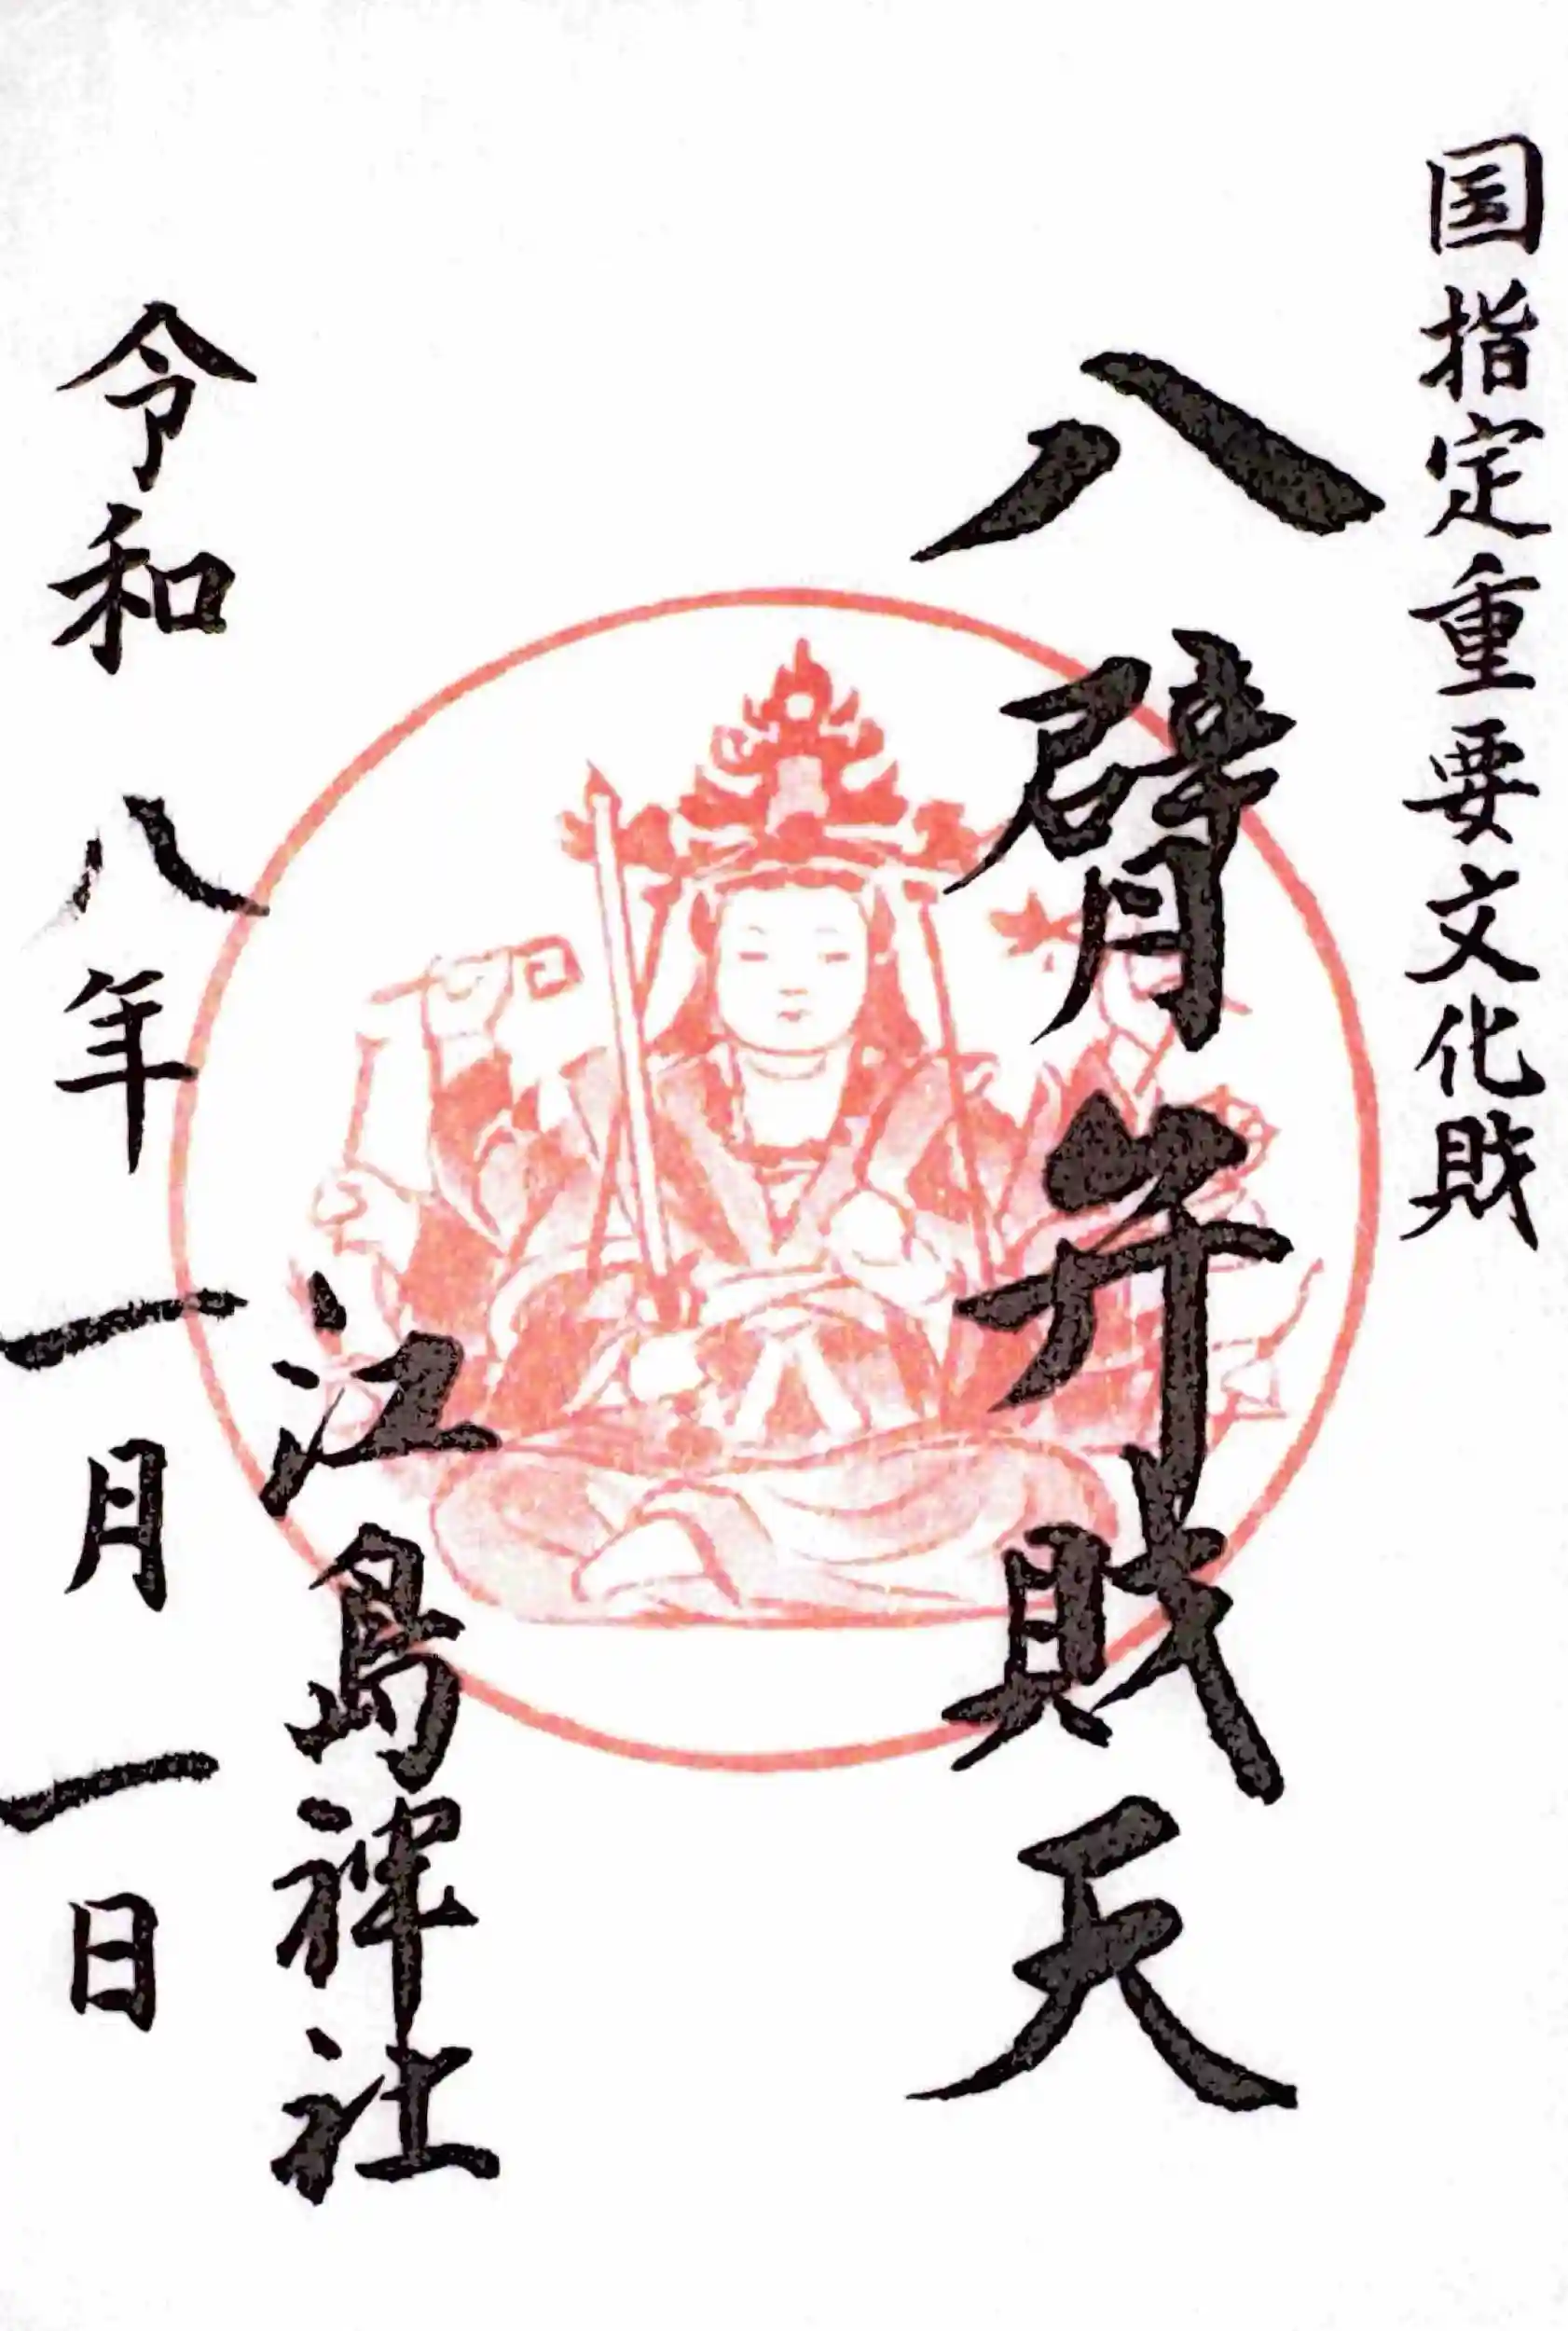 国指定重要文化財
八臂弁財天
江島神社
令和八年一月一日